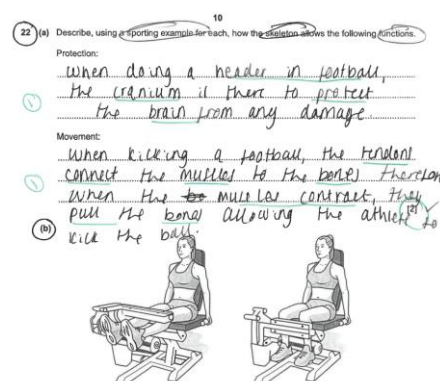 10
22 (a) Describe, using a sporting example for each, how the skeleton allows the following functions.
Protection:
When doing a header in football,
the cranium is there to protect
the brain from any damage.
Movement:
When kicking a football, the tendons
connect the muscles to the bones therefore
when the muscles contract, they
pull the bones allowing the athlete to
[2]
(b) kick the ball.